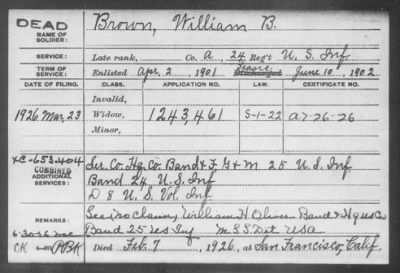 DEAD
NAME OF SOLDIER:
Brown, William B.
SERVICE:
Late rank, Co. A, 24 Reg't U. S. Inf
TERM OF SERVICE:
Enlisted Apr. 2, 1901 June 10, 1902
DATE OF FILING. CLASS. APPLICATION NO. LAW. CERTIFICATE NO.
Invalid,
1926 Mar, 23 Widow, 1243,461 5-1-22 A-7-26-26
Minor,
XC-653-404
COMBINED
ADDITIONAL SERVICES:
Ser. Co. Hq. Co. Band & F. H & M 25 U. S. Inf
Band 24 U. S. Inf
D 8 U. S. Vol. Inf
REMARKS:
William H Oliver Band & Hq
Band 25 US Inf M S S Det USA
6-30-26
CK
Died Feb. 7, 1926, at San Francisco, Calif.